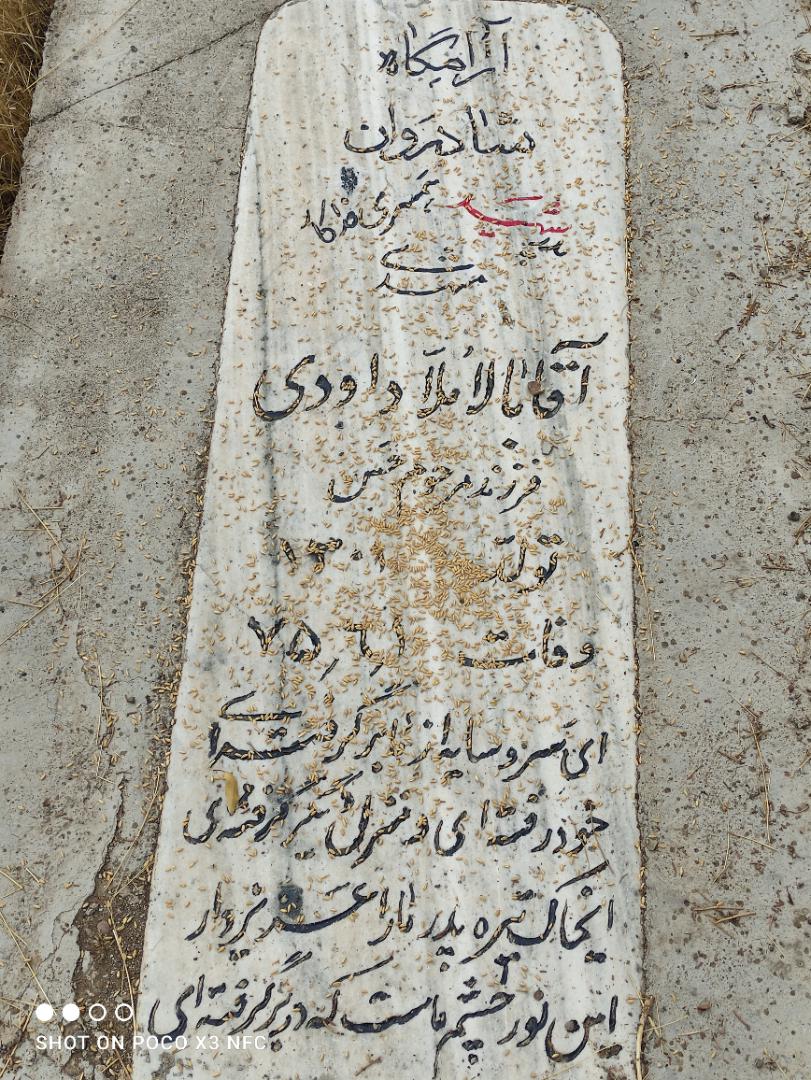 آرامگاه
شادروان
شهید
مهدی
آقابالا ملا داودی
فرزند مرحوم حسن
تولد ۱۳۰۱
وفات ۷۵٫۶٫۱
ای سرو سایه از سر ما برگرفته‌ای
خود رفته‌ای و منزل دیگر گرفته‌ای
ایخاک تیره پدر ما را عزیز دار
این نور چشم ماست که در بر گرفته‌ای
SHOT ON POCO X3 NFC